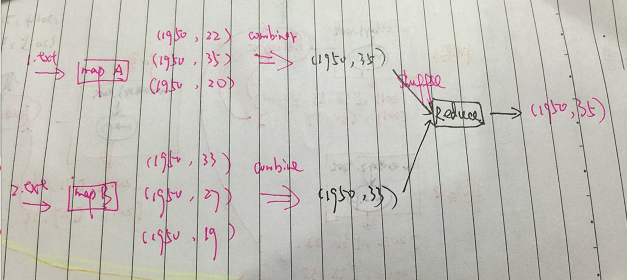 (1950, 22) combiner
1.txt map A (1950, 35) (1950, 35)
(1950, 20)
shuffle
Reduce (1950, 35)
(1950, 33) combine
2.txt map B (1950, 27) (1950, 33)
(1950, 19)